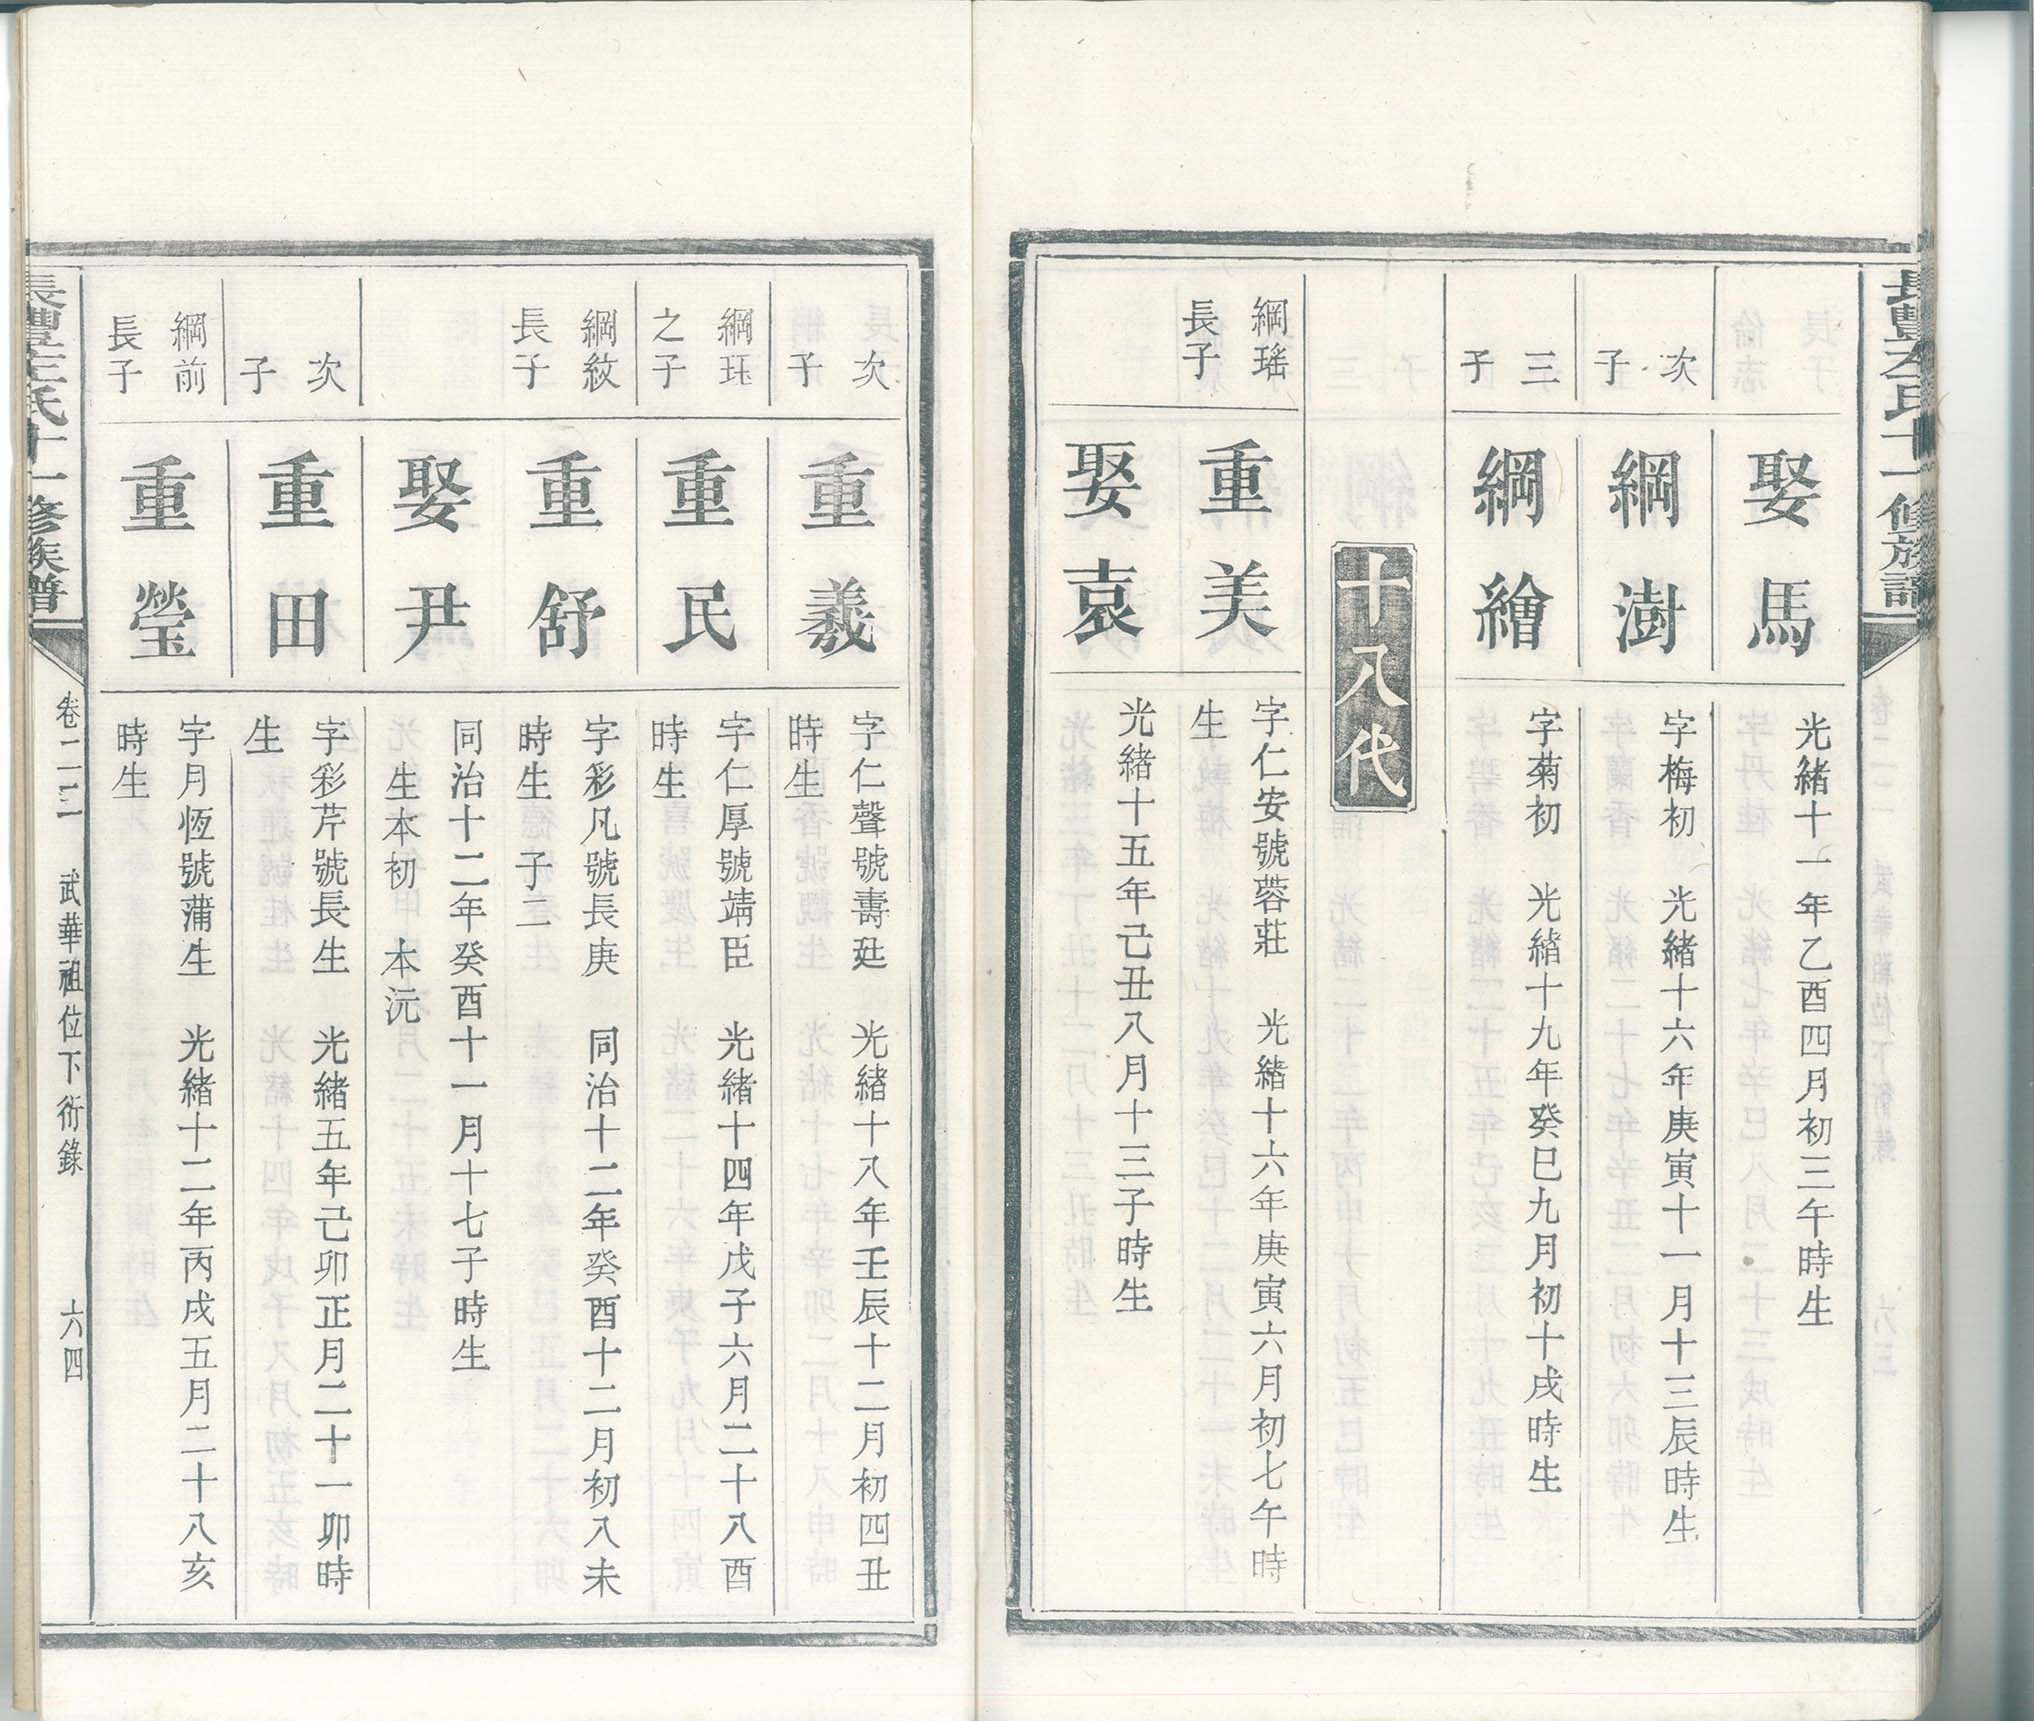 長豐左氏十一修族譜
娶馬
光緒十一年乙酉四月初三午時生
次子
綱澍
字梅初 光緒十六年庚寅十一月十三辰時生
三子
綱繪
字菊初 光緒十九年癸巳九月初十戌時生
十八代
綱瑤
長子
重美
字仁安號蓉莊 光緒十六年庚寅六月初七午時
生
娶袁
光緒十五年己丑八月十三子時生
次子
重羲
字仁聲號壽廷 光緒十八年壬辰十二月初四丑
時生
綱珏
之子
重民
字仁厚號靖臣 光緒十四年戊子六月二十八酉
時生
綱紋
長子
重舒
字彩凡號長庚 同治十二年癸酉十二月初八未
時生 子二
娶尹
同治十二年癸酉十一月十七子時生
生本初 本沅
次子
重田
字彩芹號長生 光緒五年己卯正月二十一卯時
生
綱前
長子
重瑩
字月恆號蒲生 光緒十二年丙戌五月二十八亥
時生
長豐左氏十一修族譜
卷二三 武華祖位下衍錄 六四